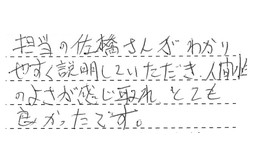 担当の佐橋さんがわかり
やすく説明していただき、人間性
のよさが感じ取れ とても
良かったです。